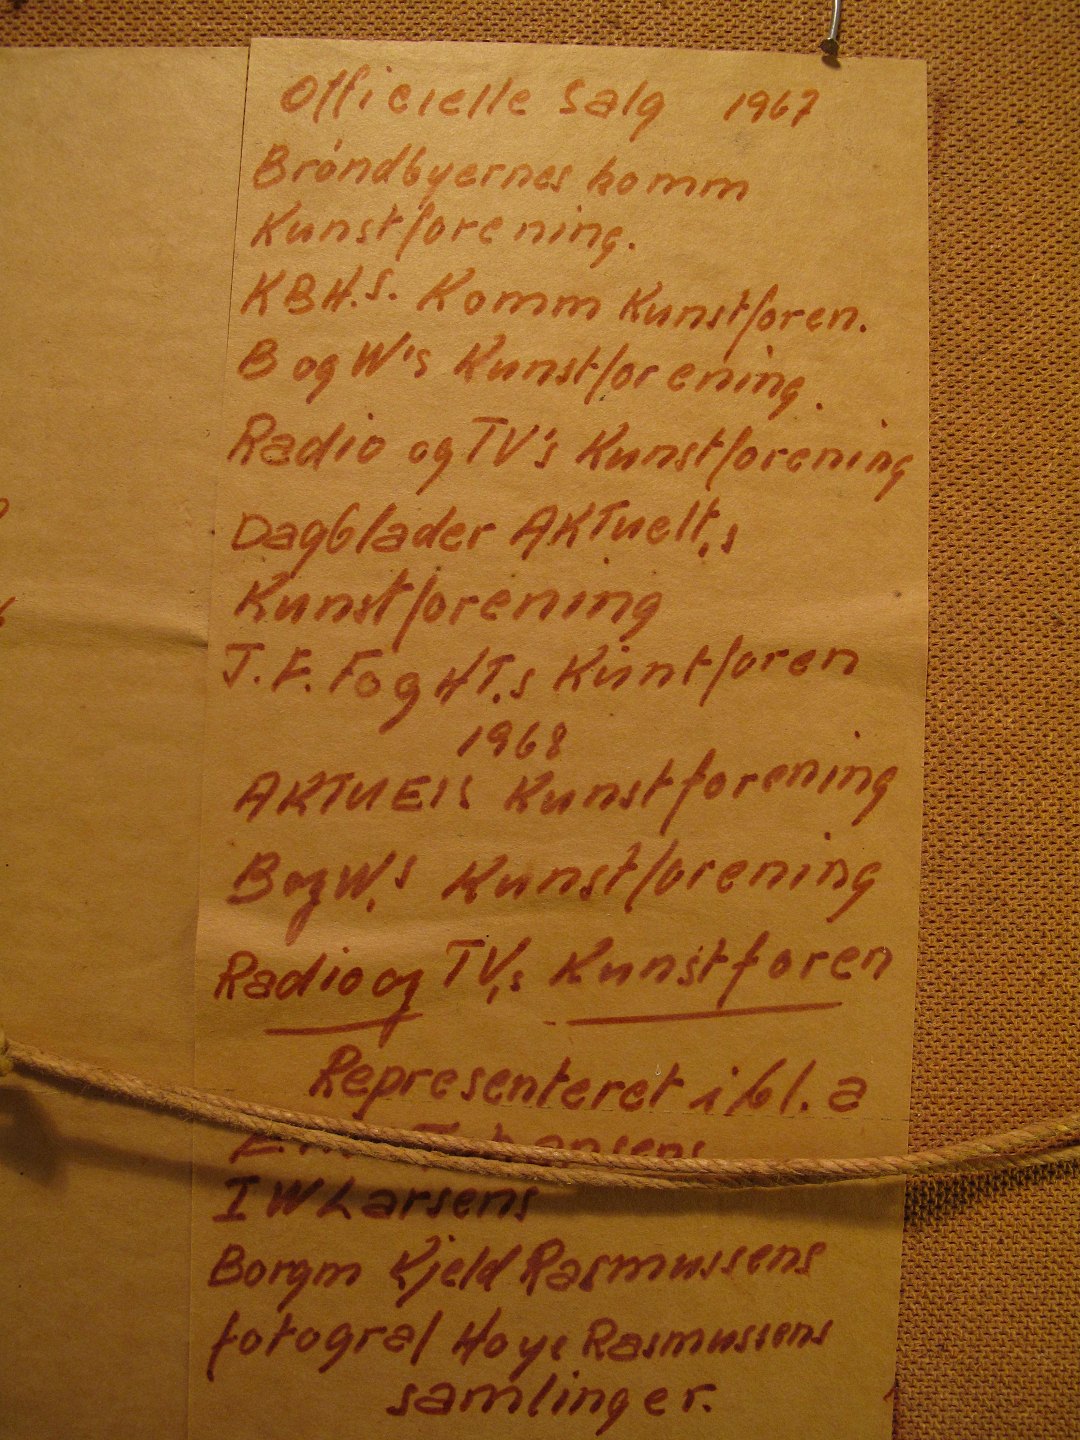 Officielle Salg 1967
Bröndbyernes komm
Kunstforening.
KBH.S. Komm Kunstforen.
B og W's Kunstforening.
Radio og TV's Kunstforening
Dagblader AKTuelt,s
Kunstforening
J.F.F og HT.s Kuntforen
1968
AKTUELS Kunstforening
B og W,s Kunstforening
Radio og TV,s Kunstforen
Representeret i bl. a
I W Larsens
Borgm Kjeld Rasmussens
fotograf Hoye Rasmussens
samlinger.